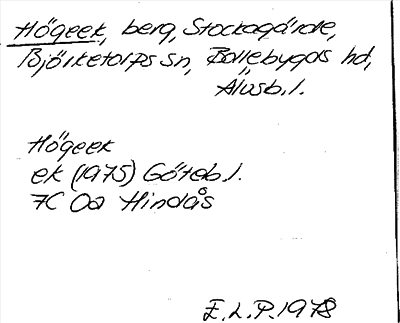 Högeek, berg, Stockagärde,
Björketorps sn, Bollebygds hd,
Älvsb. l.
Högeek
ek (1975) Göteb l.
7C 0a Hindås
E. L. P. 1978